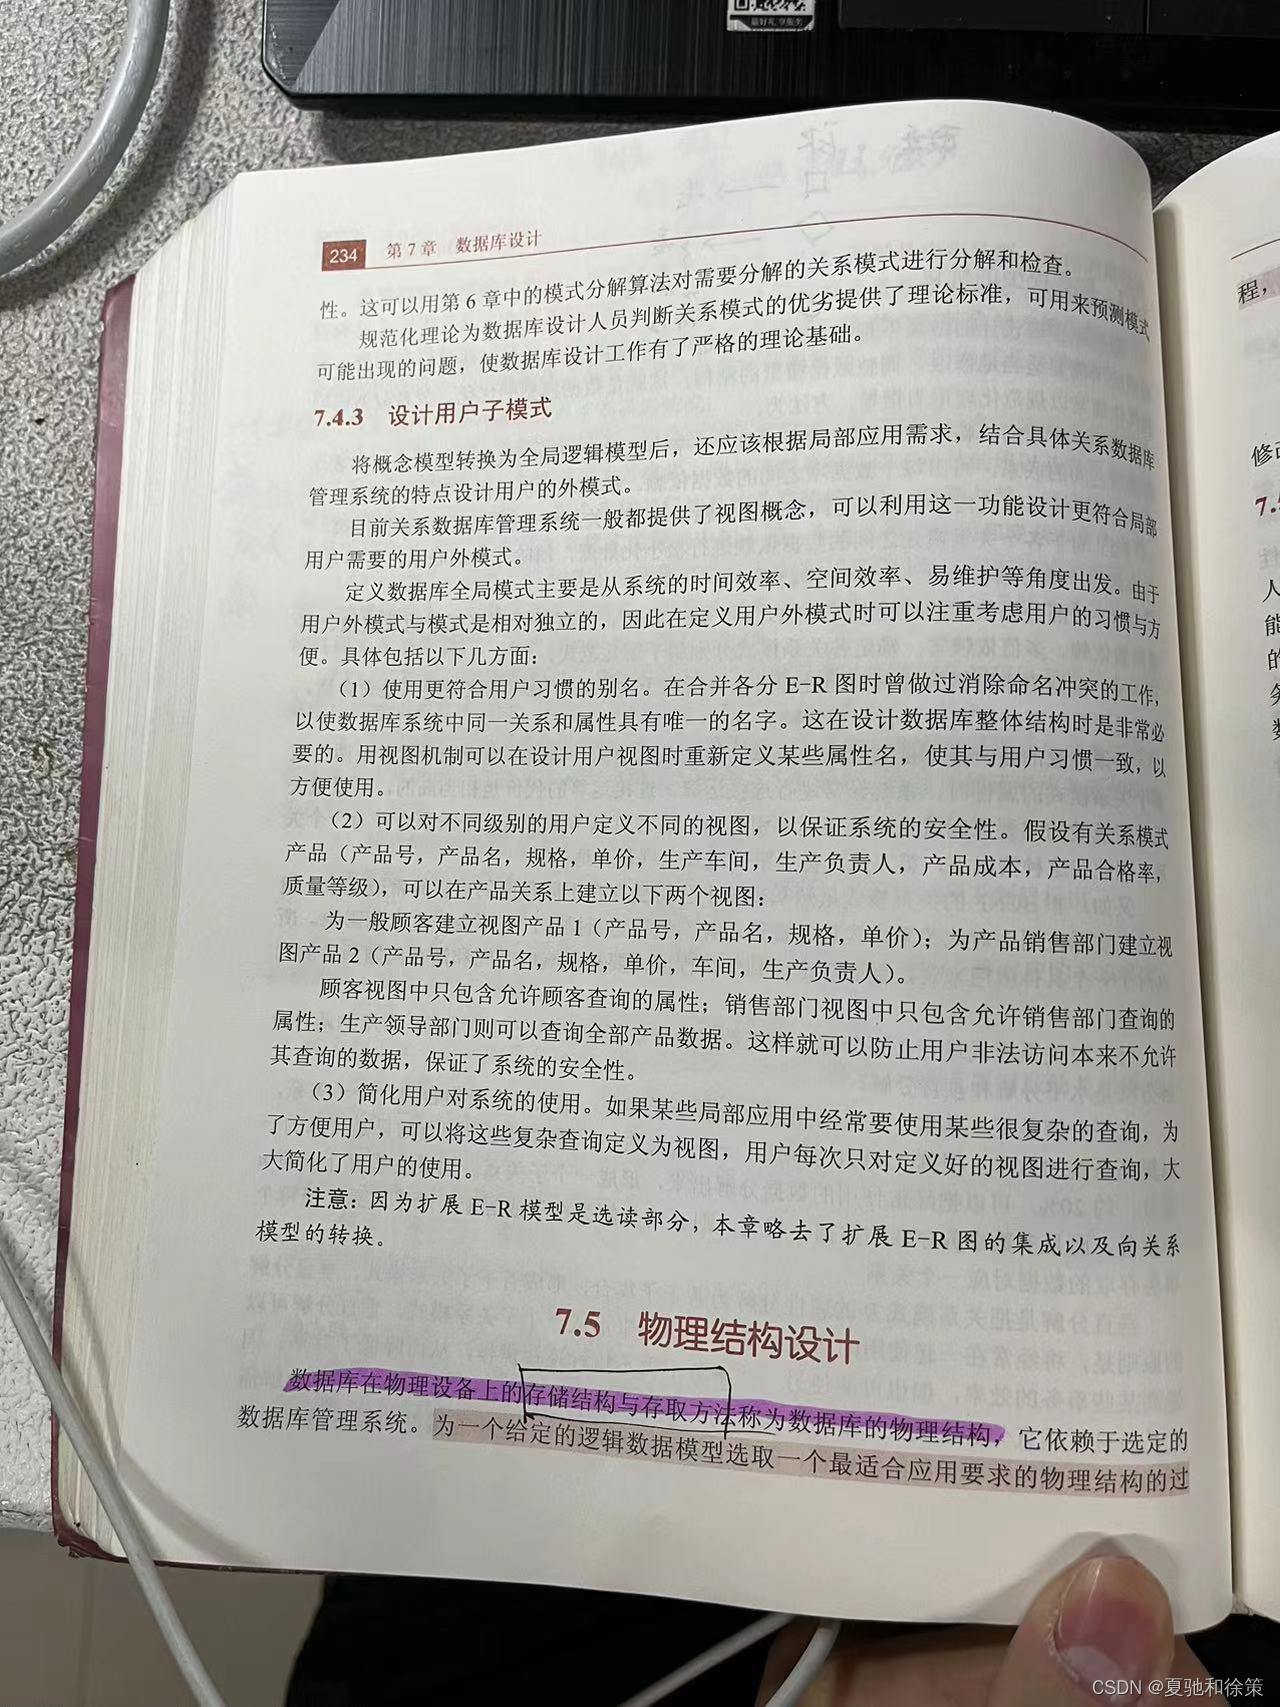 最好礼 享服务
234 第 7 章 数据库设计
性。这可以用第 6 章中的模式分解算法对需要分解的关系模式进行分解和检查。
规范化理论为数据库设计人员判断关系模式的优劣提供了理论标准，可用来预测模式
可能出现的问题，使数据库设计工作有了严格的理论基础。
7.4.3 设计用户子模式
将概念模型转换为全局逻辑模型后，还应该根据局部应用需求，结合具体关系数据库
管理系统的特点设计用户的外模式。
目前关系数据库管理系统一般都提供了视图概念，可以利用这一功能设计更符合局部
用户需要的用户外模式。
定义数据库全局模式主要是从系统的时间效率、空间效率、易维护等角度出发。由于
用户外模式与模式是相对独立的，因此在定义用户外模式时可以注重考虑用户的习惯与方
便。具体包括以下几方面：
（1）使用更符合用户习惯的别名。在合并各分 E-R 图时曾做过消除命名冲突的工作，
以使数据库系统中同一关系和属性具有唯一的名字。这在设计数据库整体结构时是非常必
要的。用视图机制可以在设计用户视图时重新定义某些属性名，使其与用户习惯一致，以
方便使用。
（2）可以对不同级别的用户定义不同的视图，以保证系统的安全性。假设有关系模式
产品（产品号，产品名，规格，单价，生产车间，生产负责人，产品成本，产品合格率，
质量等级），可以在产品关系上建立以下两个视图：
为一般顾客建立视图产品 1（产品号，产品名，规格，单价）；为产品销售部门建立视
图产品 2（产品号，产品名，规格，单价，车间，生产负责人）。
顾客视图中只包含允许顾客查询的属性；销售部门视图中只包含允许销售部门查询的
属性；生产领导部门则可以查询全部产品数据。这样就可以防止用户非法访问本来不允许
其查询的数据，保证了系统的安全性。
（3）简化用户对系统的使用。如果某些局部应用中经常要使用某些很复杂的查询，为
了方便用户，可以将这些复杂查询定义为视图，用户每次只对定义好的视图进行查询，大
大简化了用户的使用。
注意：因为扩展 E-R 模型是选读部分，本章略去了扩展 E-R 图的集成以及向关系
模型的转换。
7.5 物理结构设计
数据库在物理设备上的存储结构与存取方法称为数据库的物理结构，它依赖于选定的
数据库管理系统。为一个给定的逻辑数据模型选取一个最适合应用要求的物理结构的过
程，
修改
7.
人
能
的
务
数
CSDN @夏驰和徐策